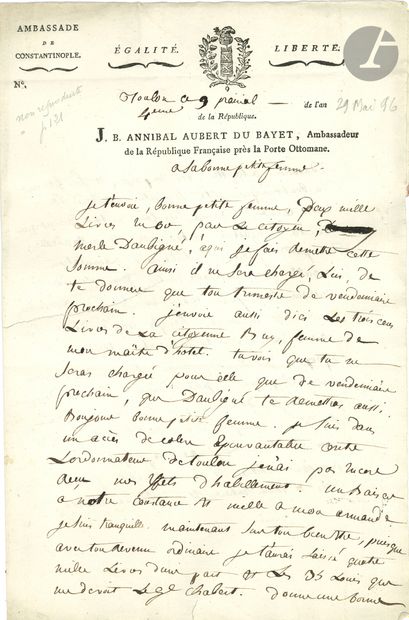 AMBASSADE
DE
CONSTANTINOPLE.
ÉGALITÉ.
LIBERTÉ.
N.°
non reproduite
p. 121
Toulon ce 9 prairial
4eme
de l'an
29 Mai 96
de la République.
J. B. ANNIBAL AUBERT DU BAYET, Ambassadeur
de la République Française près la Porte Ottomane.
a sa bonne petite femme
je t'envoie, bonne petite femme, Deux mille
Livres par Le citoyen
merle Daubigné, à qui je fais remettre cette
Somme. ainsi il ne Sera chargé, Lui, de
te donner que ton trimestre de vendemiaire
prochain. j'envoie aussi d'ici Les trois cens
Livres de La citoyenne femme de
mon maître d'hotel. tu vois que tu ne
Seras chargé pour elle que de vendemiaire
prochain, que Daubigné te remettra aussi.
Bonjour bonne petite femme. je Suis dans
un accès de colere Epouvantable contre
L'ordonnateur de toulon je n'ai pas encore
mes effets d'habillement. un Baiser
a notre Constance Et mille a mon armande
je Suis tranquille maintenant Sur ton bien être, puisque
avec ton revenu ordinaire je t'aurai Laissé quatre
mille Livres d'une part Et Les 35 Louis que
me devoit Le gl chabert. Donne une bonne